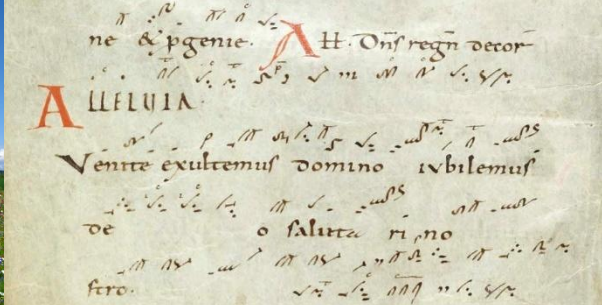 ne & p̄genie. A H. Dn̄s regn̄ decor̄
ALLELUIA.
Venite exultemus domino iubilemus
de o saluta ri no
stro.